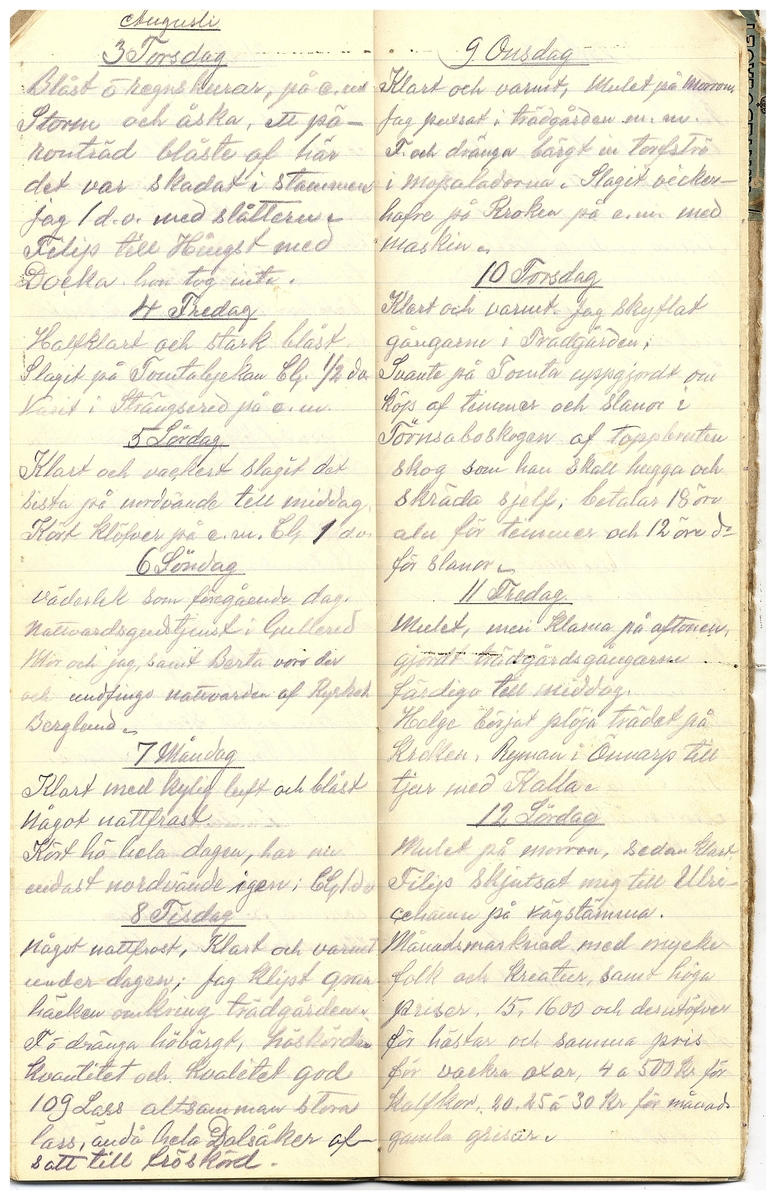 Augusti
3 Torsdag
Blåst o regnskurar, på e.m
Storm och åska, ett pä-
ronträd blåste af här
det var skadat i stammen
jag 1 d.v. med slåttern.
Filip till Hingst med
Docka hon tog inte.
4 Fredag
Halfklart och stark blåst.
Slagit på Tomtalyckan 1/2 dv
Varit i Strängsered på e.m.
5 Lördag
Klart och vackert slagit det
sista på nordvände till middag.
Kört klöfver på e.m. 1 dv.
6 Söndag
Väderlek som föregående dag.
Nattvardsgudstjenst i Gullered
Mor och jag, samt Berta voro der
och undfingo nattvarden af Kyrkoh
Berglund.
7 Måndag
Klart med kylig luft och blåst
Något nattfrost
Kört hö hela dagen, har nu
endast nordvände igen; 1 dv
8 Tisdag
Något nattfrost, Klart och varmt
under dagen; jag klipt gran
häcken omkring trädgården.
F o dränga höbärgt, höskörden
kvantitet och kvalitet god
109 Lass altsamman stora
lass, ändå hela Dalsåker af-
satt till fröskörd.
9 Onsdag
Klart och varmt, Mulet på Morron,
Jag putsat i trädgården m.m.
F. och dränga bärgt in torfströ
i mossaladorna. Slaget vicker-
hafre på Kroken på e.m. med
maskin.
10 Torsdag
Klart och varmt. jag skyflat
gångarne i Trädgården;
Svante på Tomta uppgjordt om
köp af timmer och slanor i
Törnsaboskogen af toppbruten
skog som han skall hugga och
skräda sjelf; betalar 18 öre
aln för timmer och 12 öre do
för slanor.
11 Fredag
Mulet, men Klarna på aftonen,
gjordt trädgårdsgångarne
färdiga till middag.
Helge börjat plöja trädet på
Kroken. Ryman i Önnarp till
tjur med Kalla.
12 Lördag
Mulet på morron, sedan klart.
Filip skjutsat mig till Ulri-
cehamn på vägstämma.
Månadsmarknad med mycke
folk och kreatur, samt höga
priser, 15, 1600 och derutöfver
för hästar och samma pris
för vackra oxar, 4 a 500 Kr för
kalfkor, 20. 25 a 30 Kr för månads
gamla grisar.